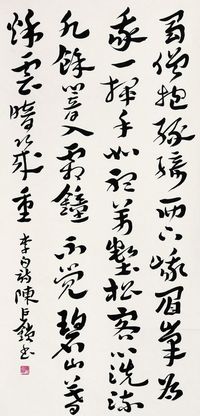 蜀僧抱綠綺西下峨眉峯為
我一揮手如聽萬壑松客心洗流
水餘響入霜鐘不覺碧山暮
秋雲暗幾重
李白詩陳巨鎖書